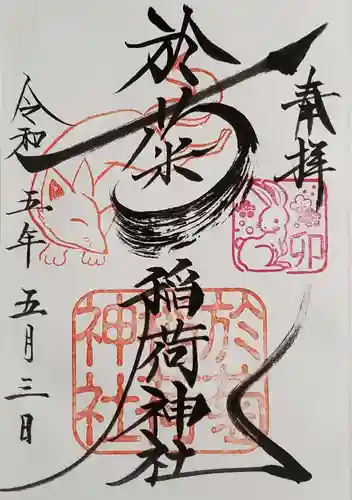 奉拝
於菊
稲荷神社
令和五年五月三日
卯
於菊稲荷神社